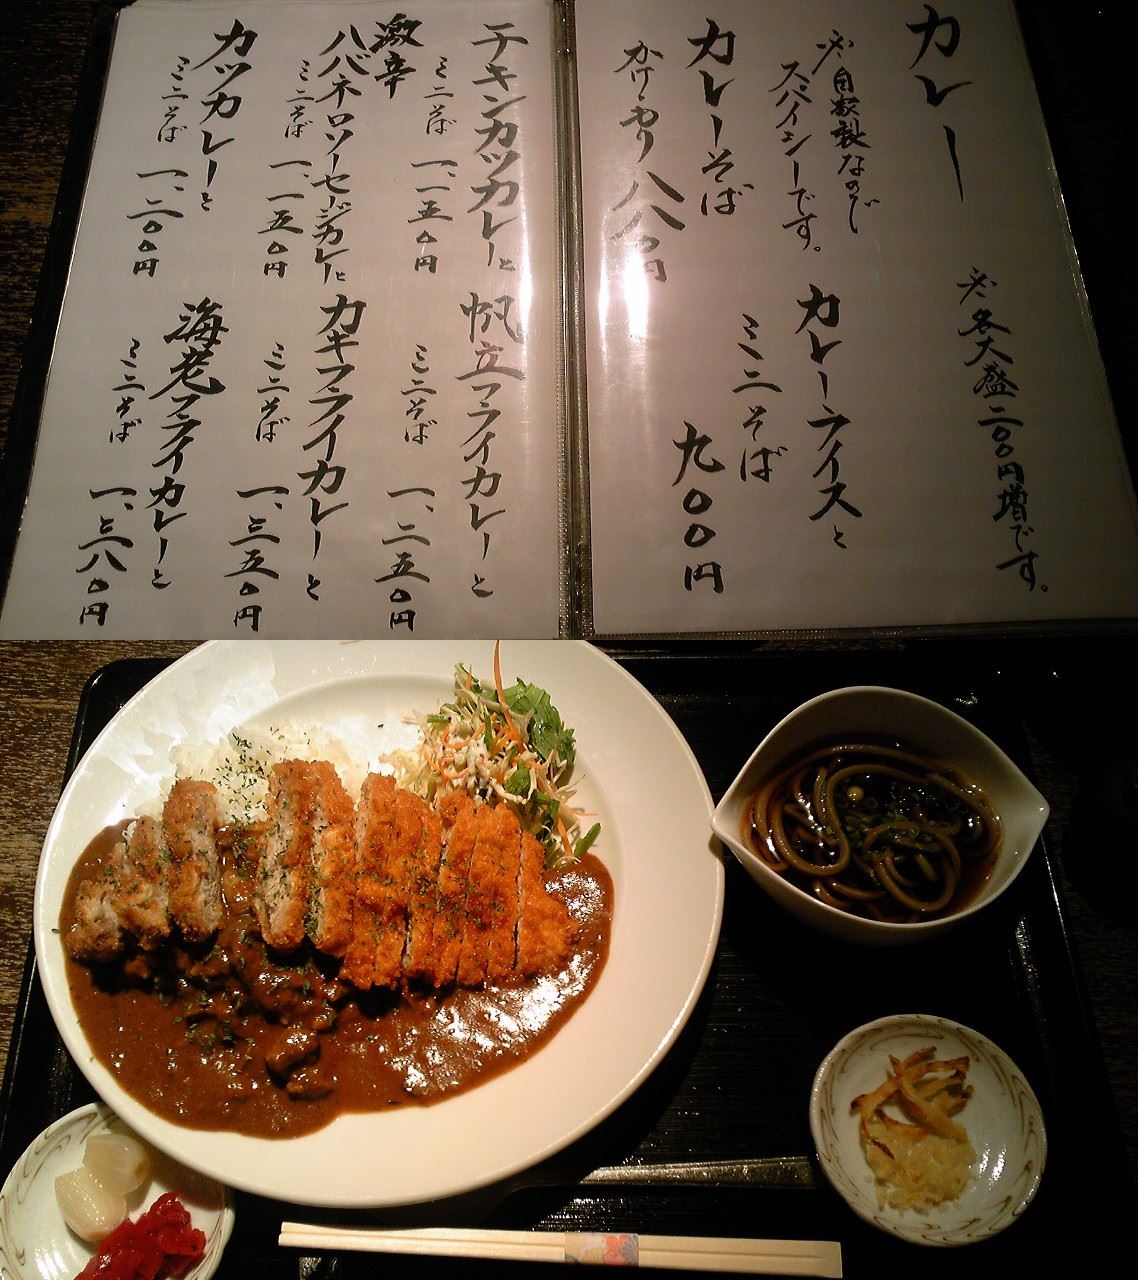 カレー
※各大盛二〇〇円増です。
※自家製なので
スパイシーです。
カレーライスと
ミニそば
九〇〇円
カレーそば
かけ・もり 八八〇円
チキンカツカレーと
ミニそば 一、一五〇円
帆立フライカレーと
ミニそば 一、二五〇円
激辛
ハバネロソーセージカレーと
ミニそば 一、一五〇円
カキフライカレーと
ミニそば 一、三五〇円
カツカレーと
ミニそば 一、二〇〇円
海老フライカレーと
ミニそば 一、三八〇円